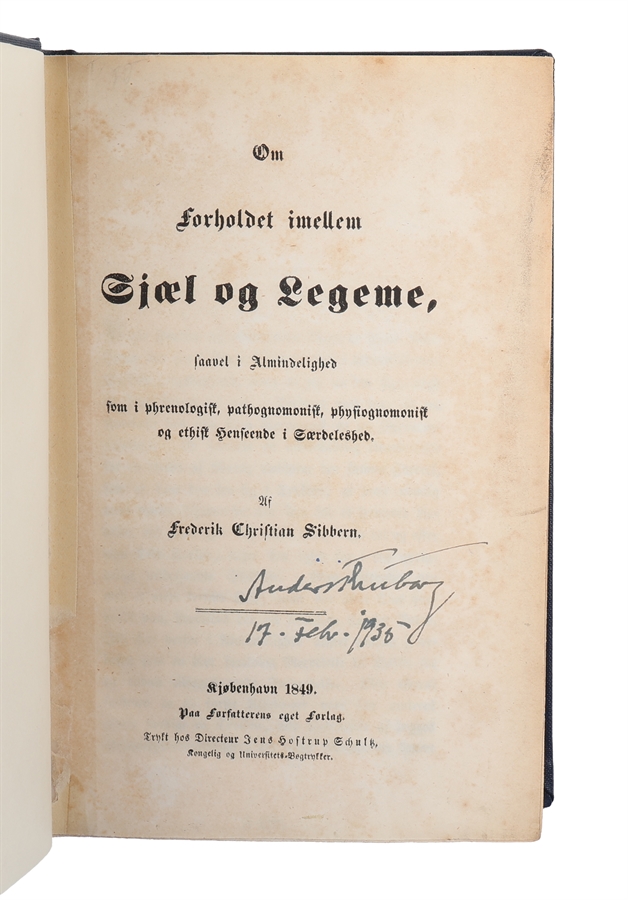 Om
Forholdet imellem
Sjæl og Legeme,
saavel i Almindelighed
som i phrenologisk, pathognomonisk, physiognomonisk
og ethisk Henseende i Særdeleshed.
Af
Frederik Christian Sibbern.
Anders Thuborg
17. Febr. 1935
Kjøbenhavn 1849.
Paa Forfatterens eget Forlag.
Trykt hos Directeur Jens Hostrup Schultz,
Kongelig og Universitets-Bogtrykker.